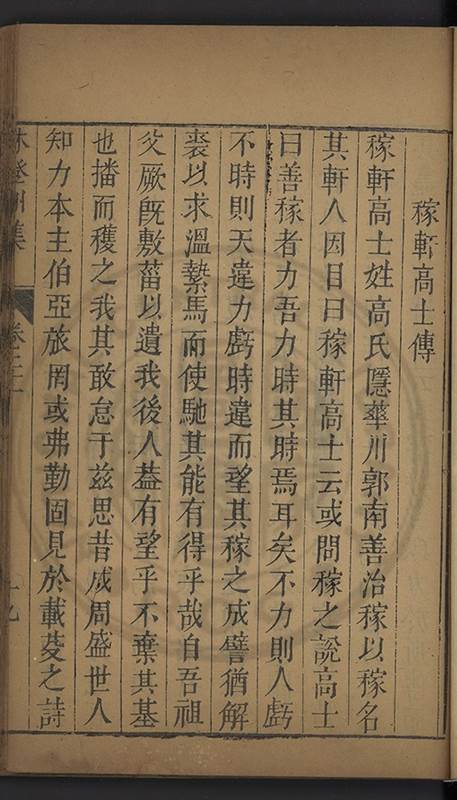 稼軒高士傳
稼軒高士姓高氏隱華川郭南善治稼以稼名
其軒人因目曰稼軒高士云或問稼之說高士
曰善稼者力吾力時其時焉耳矣不力則人虧
不時則天違力虧時違而望其稼之成譬猶解
裘以求溫縶馬而使馳其能有得乎哉自吾祖
父厥旣敷菑以遺我後人葢有望乎不棄其基
也播而穫之我其敢怠于兹思昔成周盛世人
知力本主伯亞旅罔或弗勤固見於載芟之詩
林登州集 卷二十一 十九